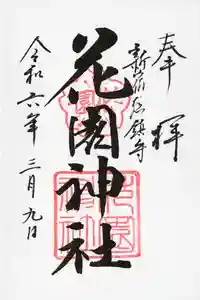 奉拝
新宿総鎮守
花園神社
令和六年三月九日